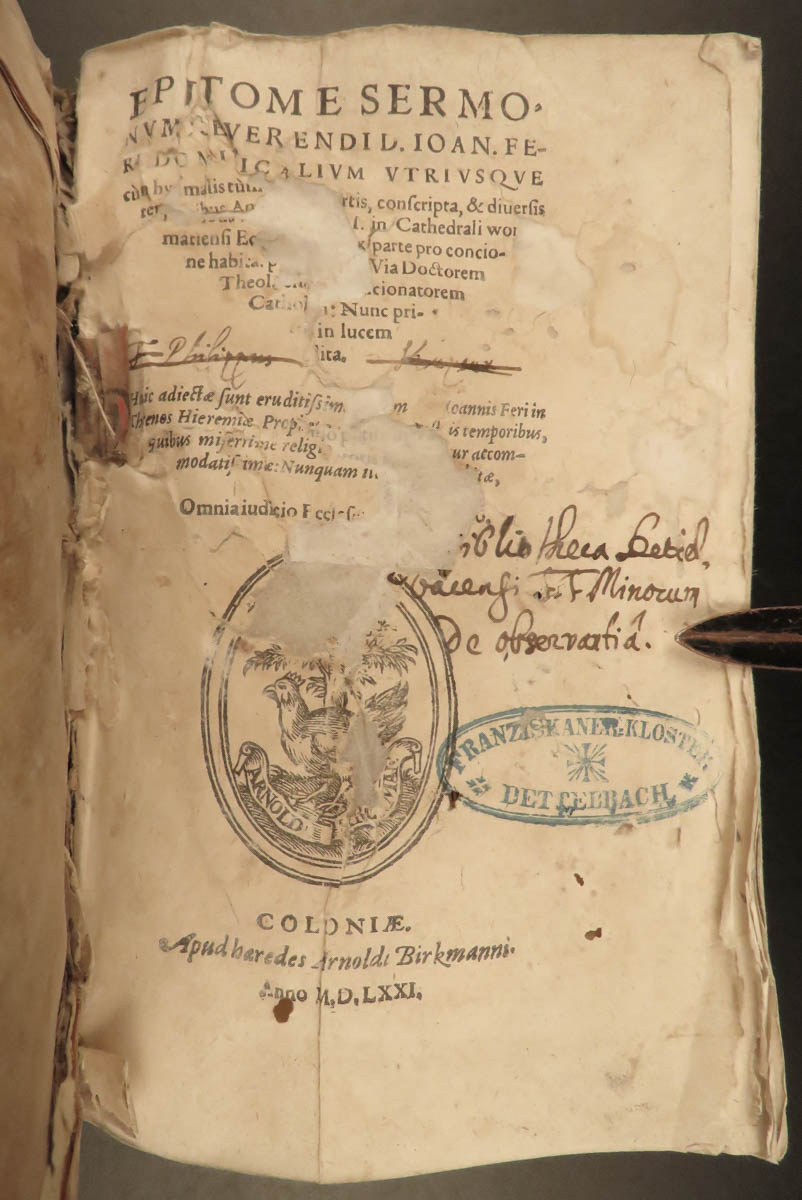 EPITOME SERMO-
NVM REVERENDI D. IOAN. FE-
DOMINICALIVM VTRIVSQVE
rtis, conscripta, & diuersis
in Cathedrali wor
matiensi Ec parte pro concio-
ne habita. Via Doctorem
Theol cionatorem
Cathol Nunc pri-
in lucem
F Philippus dita.
Huic adiectæ sunt eruditissim m Ioannis Feri in
Threnos Hieremiæ Prop is temporibus,
quibus miserrime relig ur accom-
modatissimæ: Nunquam itæ,
Omnia iudicio Ecclesiæ
Bibliotheca Dettel,
bacensi F F Minorum
De observantiâ.
ARNOLD
FRANZISKANER-KLOSTER
DETTELBACH.
COLONIÆ.
Apud hæredes Arnoldi Birkmanni.
Anno M.D.LXXI.